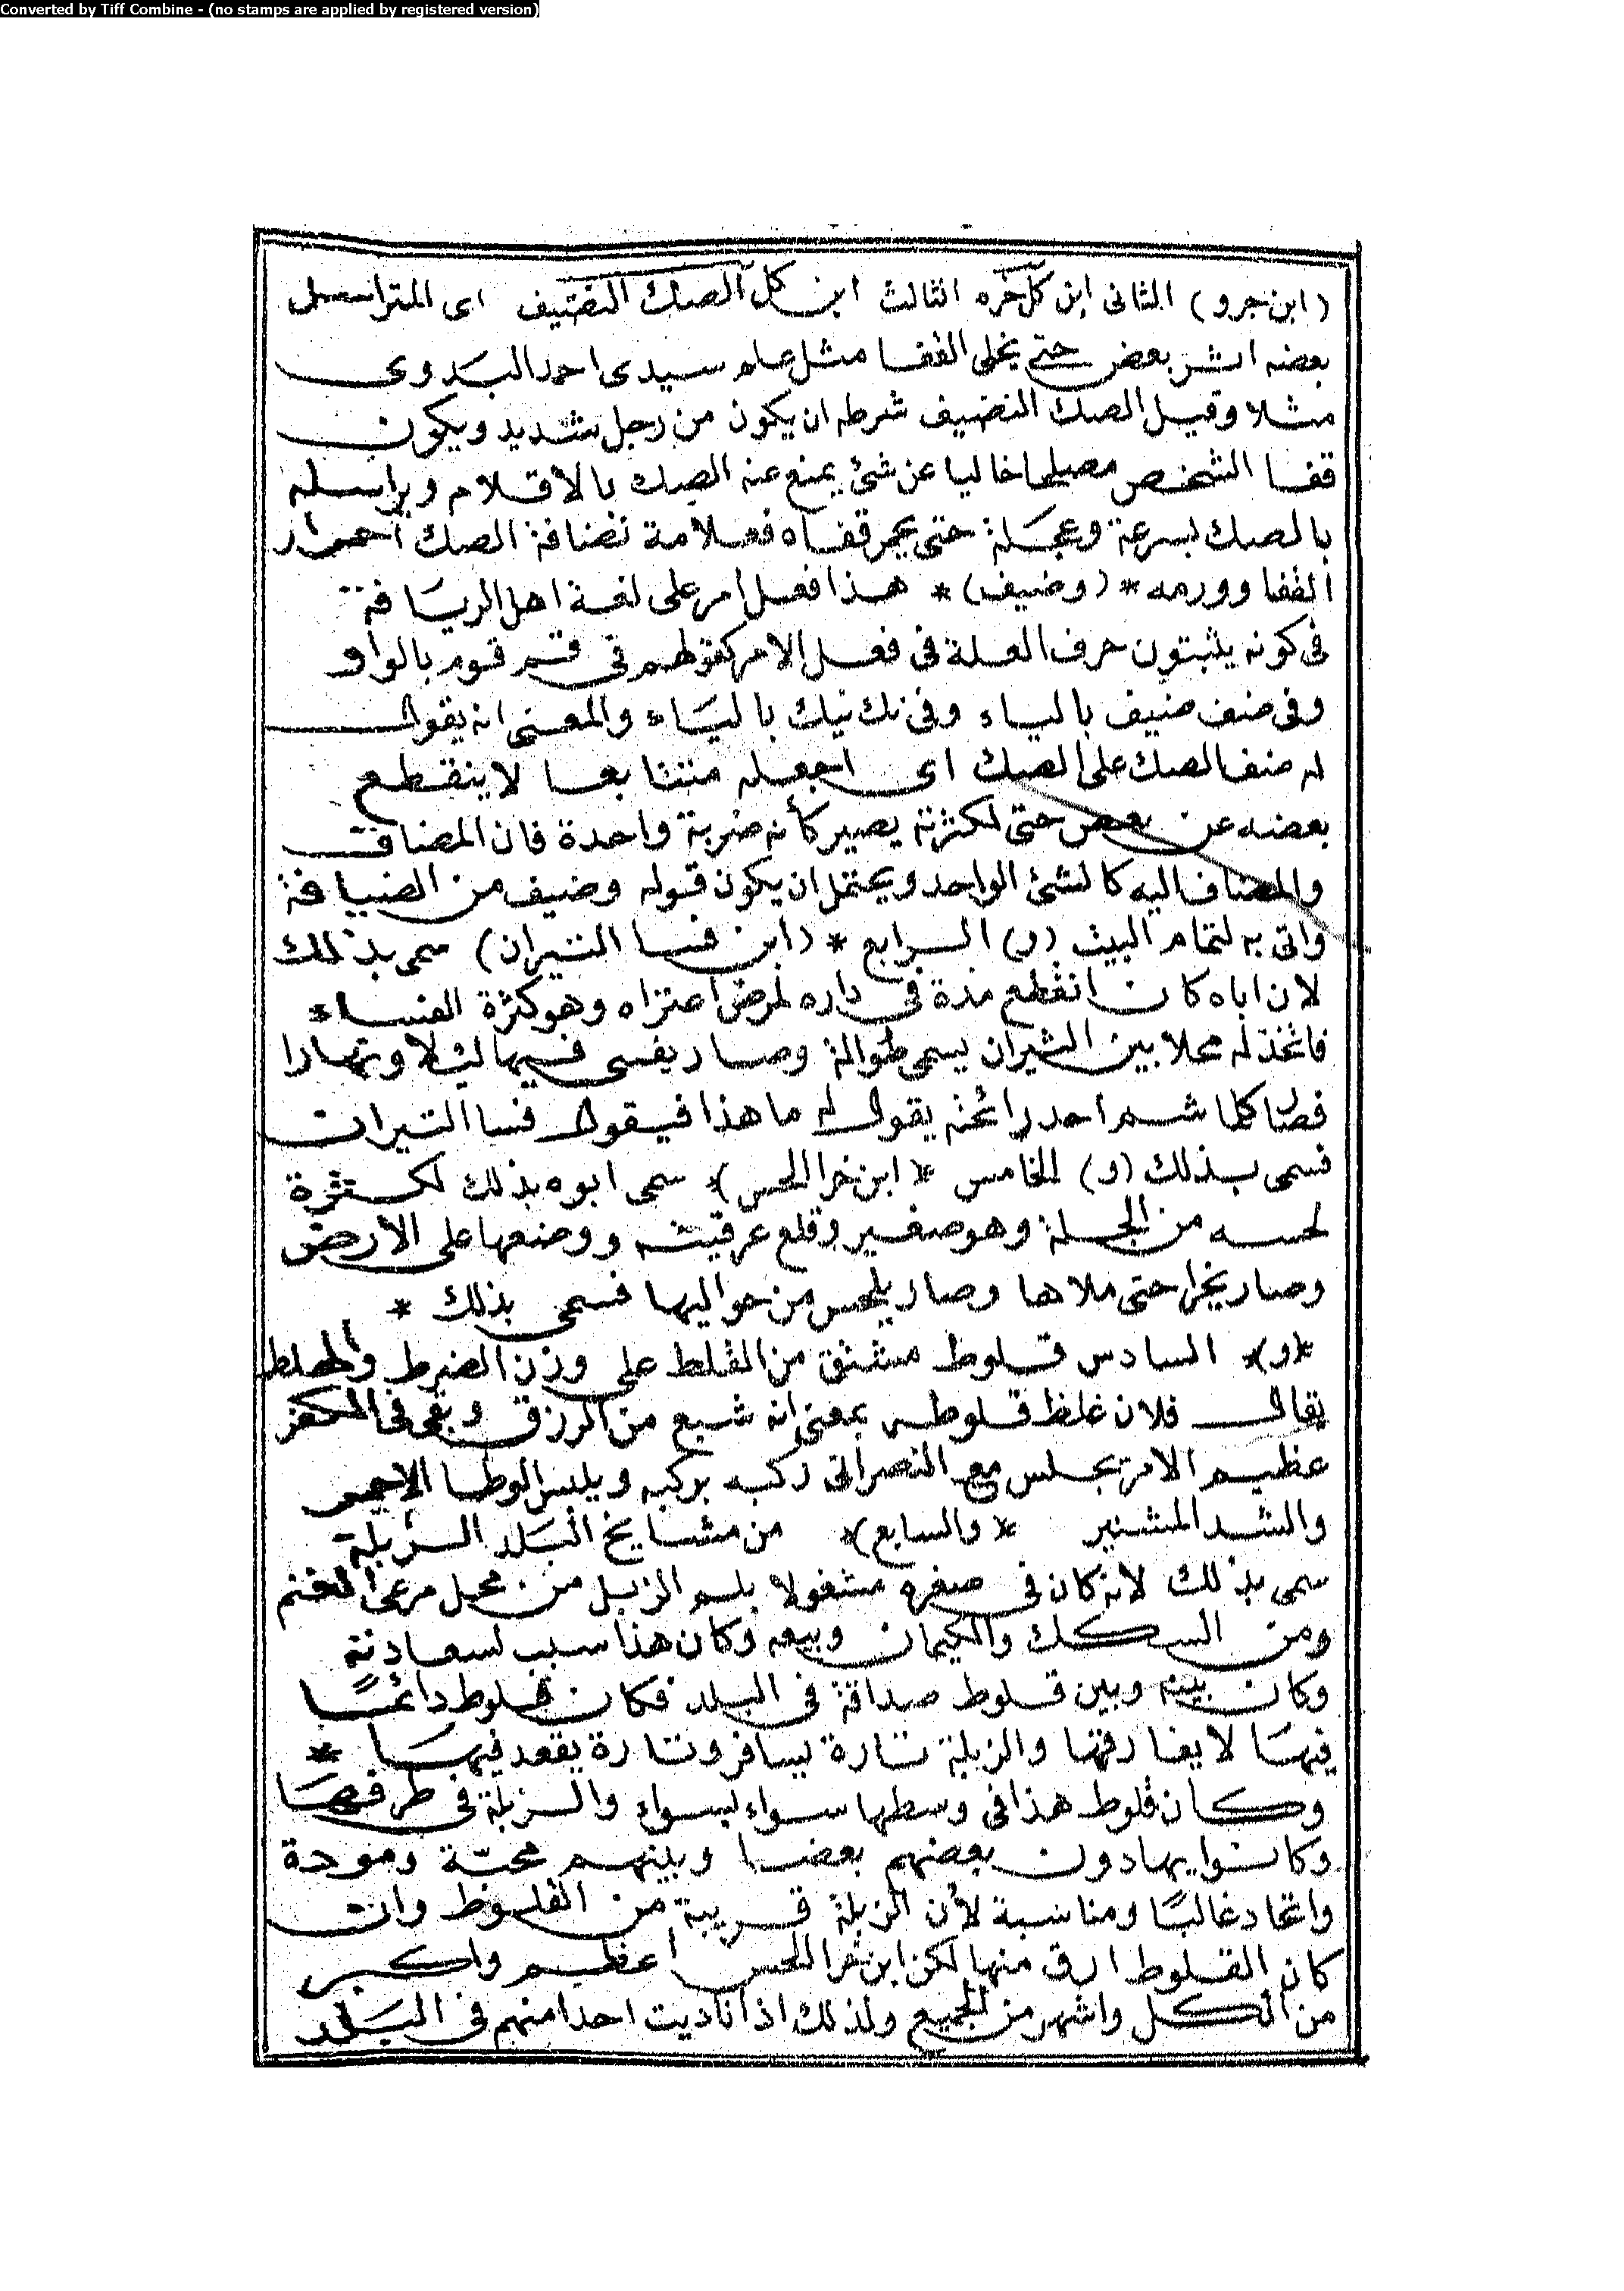 Converted by Tiff Combine - (no stamps are applied by registered version)
(ابن جرو) الثانى ابن كل خره الثالث ابن كل الصك النضيف اى المتراسل
بعضه اثر بعض حتى يخلى القفا مثل علم سيدى احمد البدوى
مثلا وقيل الصك النضيف شرطه ان يكون من رجل شديد ويكون
قفا الشخص خاليا عن شئ يمنع عنه الصك بالاقلام ويراسله
بالصك بسرعة وعجلة حتى يحمر قفاه فعلامة نضافة الصك احمرار
القفا وورمه * (وضيف) * هذا فعل امر على لغة اهل الريافة
فى كونه يثبتون حرف العلة فى فعل الامر كقولهم فى قم قوم بالواو
وفى ضف ضيف بالياء وفى نك نيك بالياء والمعنى انه يقول
له ضف الصك على الصك اى اجعله متتابعا لا ينقطع
بعضه عن بعض حتى لكثرته يصير كأنه ضربة واحدة فان المضاف
والمضاف اليه كالشئ الواحد ويحتمل ان يكون قوله وضيف من الضيافة
واتى به لتمام البيت (و) الرابع * (ابن فسا التيران) سمى بذلك
لان اباه كان انقطع مدة فى داره لمرض اعتراه وهو كثرة الفساء
فاتخذ له محلا بين الثيران يسمى طوالة وصار يفسى فيها ليلا ونهارا
فصار كلما شم احد رائحته يقول له ما هذا فيقول فسا التيران
فسمى بذلك (و) الخامس * (ابن خرا اللحس) * سمى ابوه بذلك لكثرة
لحسه من الجلة وهو صغير وقلع عرقيته ووضعها على الارض
وصار يخرا حتى ملاها وصار يلحس من حواليها فسمى بذلك *
*(و)* السادس قلوط مشتق من القلط على وزن الضرط والخلط
يقال فلان غلظ قلوطه بمعنى انه شبع من الرزق وبقى فى
عظيم الامر يجلس مع النصرانى ركبه بركبه ويلبس الوطا الاحمر
والشد المشنبر *(والسابع)* من مشايخ البلد الزبلة
سمى بذلك لانه كان فى صغره مشغولا بلم الزبل من محل مرعى الغنم
ومن السكك والكيمان وبيعه وكان هذا سبب لسعادته
وكان بينه وبين قلوط صداقة فى البلد فكان قلوط دائمًا
فيها لا يفارقها والزبلة تارة يسافر وتارة يقعد فيها *
وكان قلوط هذا فى وسطها سواء بسواء والزبلة فى طرفها
وكانوا يهادون بعضهم بعضا وبينهم محبّة ومودة
واتحاد غالبًا ومناسبة لأن الزبلة قريبة من القلوط وان
كان القلوط ارق منها لكن ابن خرا اللحس اعظم واكبر
من الكل واشهر من الجميع ولذلك اذا ناديت احدا منهم فى البلد